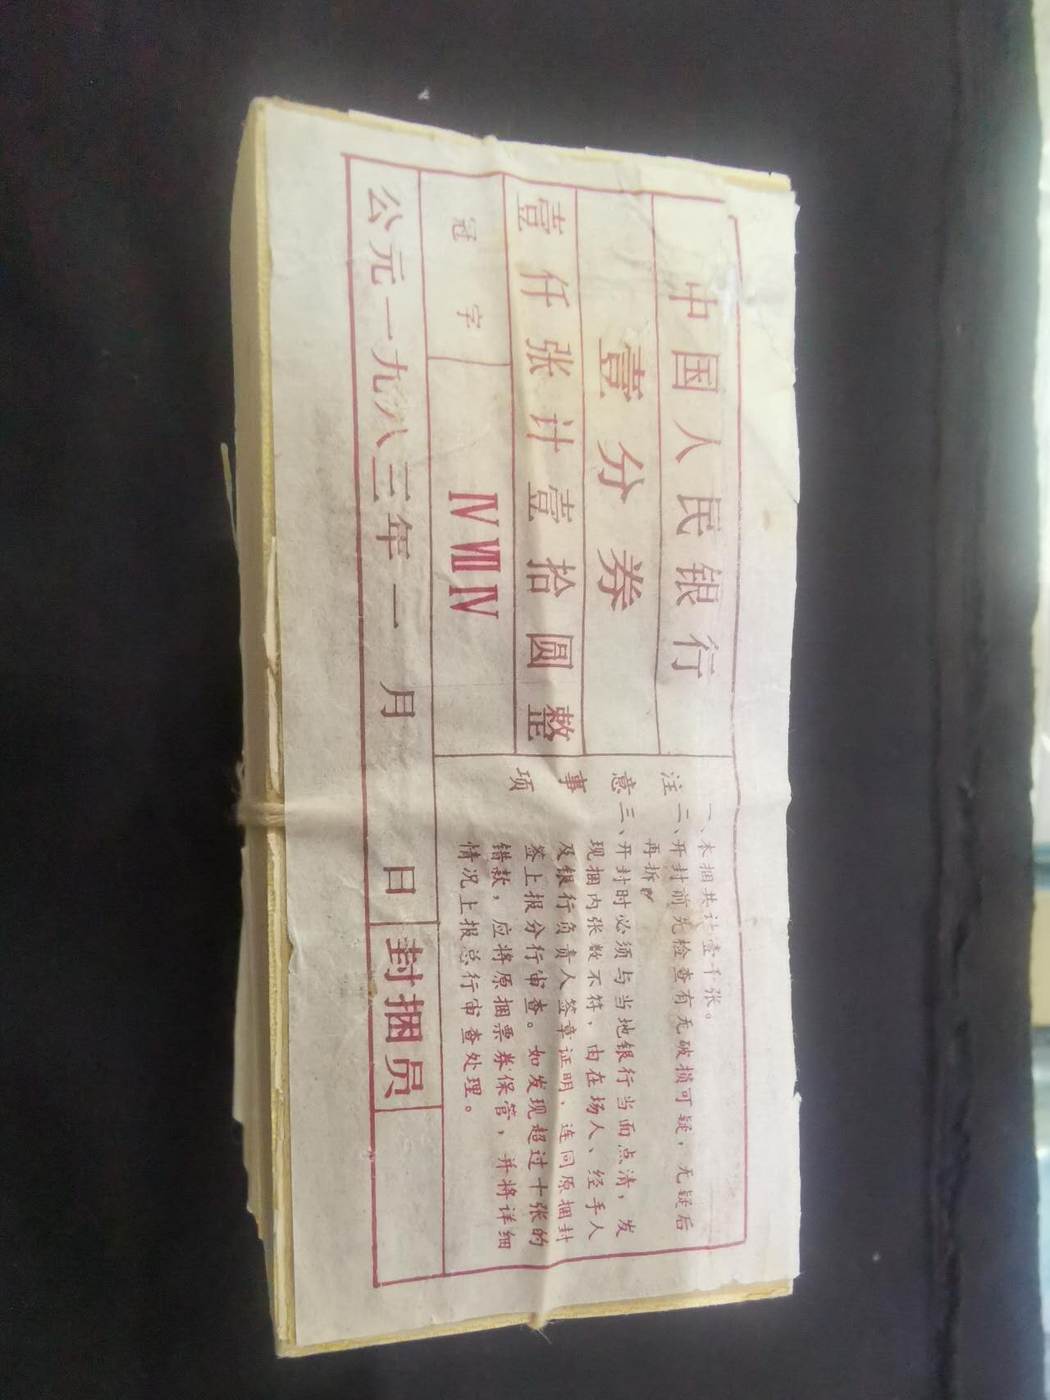 中国人民银行
壹分券
壹仟张计壹拾圆整
冠字
ⅣⅦⅣ
公元一九八三年一月 日
封捆员
注意事项
一、本捆共计壹千张。
二、开封前先检查有无破损可疑，无疑后
再拆。
三、开封时必须与当地银行当面点清，发
现捆内张数不符，由在场人、经手人
及银行负责人签章证明，连同原捆封
签上报分行审查。如发现超过十张的
错款，应将原捆票券保管，并将详细
情况上报总行审查处理。